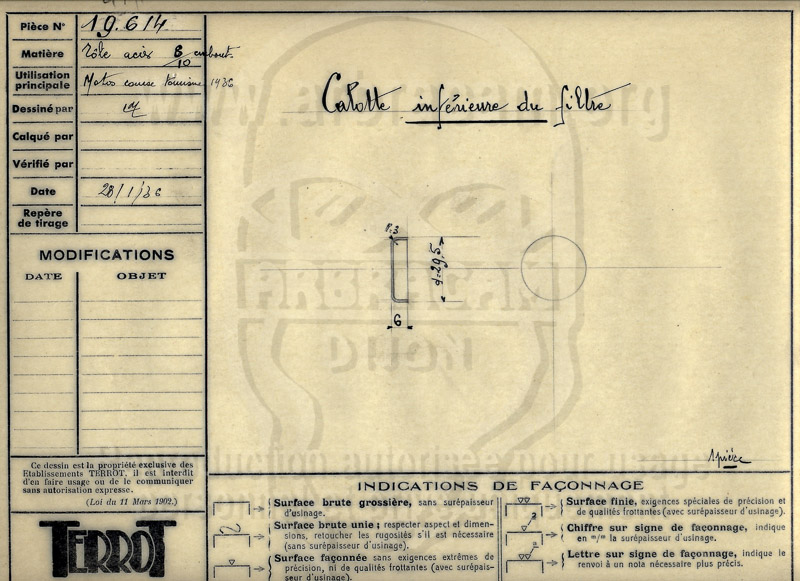 Pièce N° 19.614
Matière Tôle acier 8/10 embout.
Utilisation principale Motos course tourisme 1936
Dessiné par
Calqué par
Vérifié par
Date 28/1/36
Repère de tirage
MODIFICATIONS
DATE OBJET
Ce dessin est la propriété exclusive des
Etablissements TERROT, il est interdit
d'en faire usage ou de le communiquer
sans autorisation expresse.
(Loi du 11 Mars 1902.)
TERROT
Calotte inférieure du filtre
r.3
d.29,5
6
1 pièce
INDICATIONS DE FAÇONNAGE
Surface brute grossière, sans surépaisseur
d'usinage.
Surface brute unie; respecter aspect et dimen-
sions, retoucher les rugosités s'il est nécessaire
(sans surépaisseur d'usinage).
Surface façonnée sans exigences extrêmes de
précision, ni de qualités frottantes (avec surépais-
seur d'usinage).
Surface finie, exigences spéciales de précision et
de qualités frottantes (avec surépaisseur d'usinage).
Chiffre sur signe de façonnage, indique
en m/m la surépaisseur d'usinage.
Lettre sur signe de façonnage, indique le
renvoi à un nota nécessaire plus précis.
ARBRACAM
DIJON